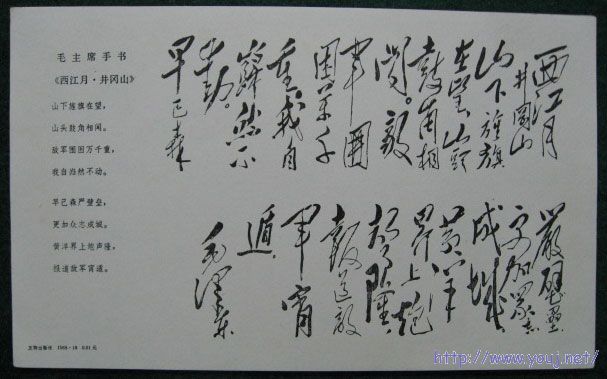 毛主席手书
《西江月·井冈山》
山下旌旗在望，
山头鼓角相闻。
敌军围困万千重，
我自岿然不动。
早已森严壁垒，
更加众志成城。
黄洋界上炮声隆，
报道敌军宵遁。
文物出版社
西江月
井岡山
山下旌旗
在望，山頭
鼓角相
聞。敵
軍圍
困萬千
重，我自
巋然不
動。
早已森
嚴壁壘，
更加眾志
成城。
黄洋
界上炮
聲隆，
報道敵
軍宵
遁。
毛泽东
http://www.youj.net/